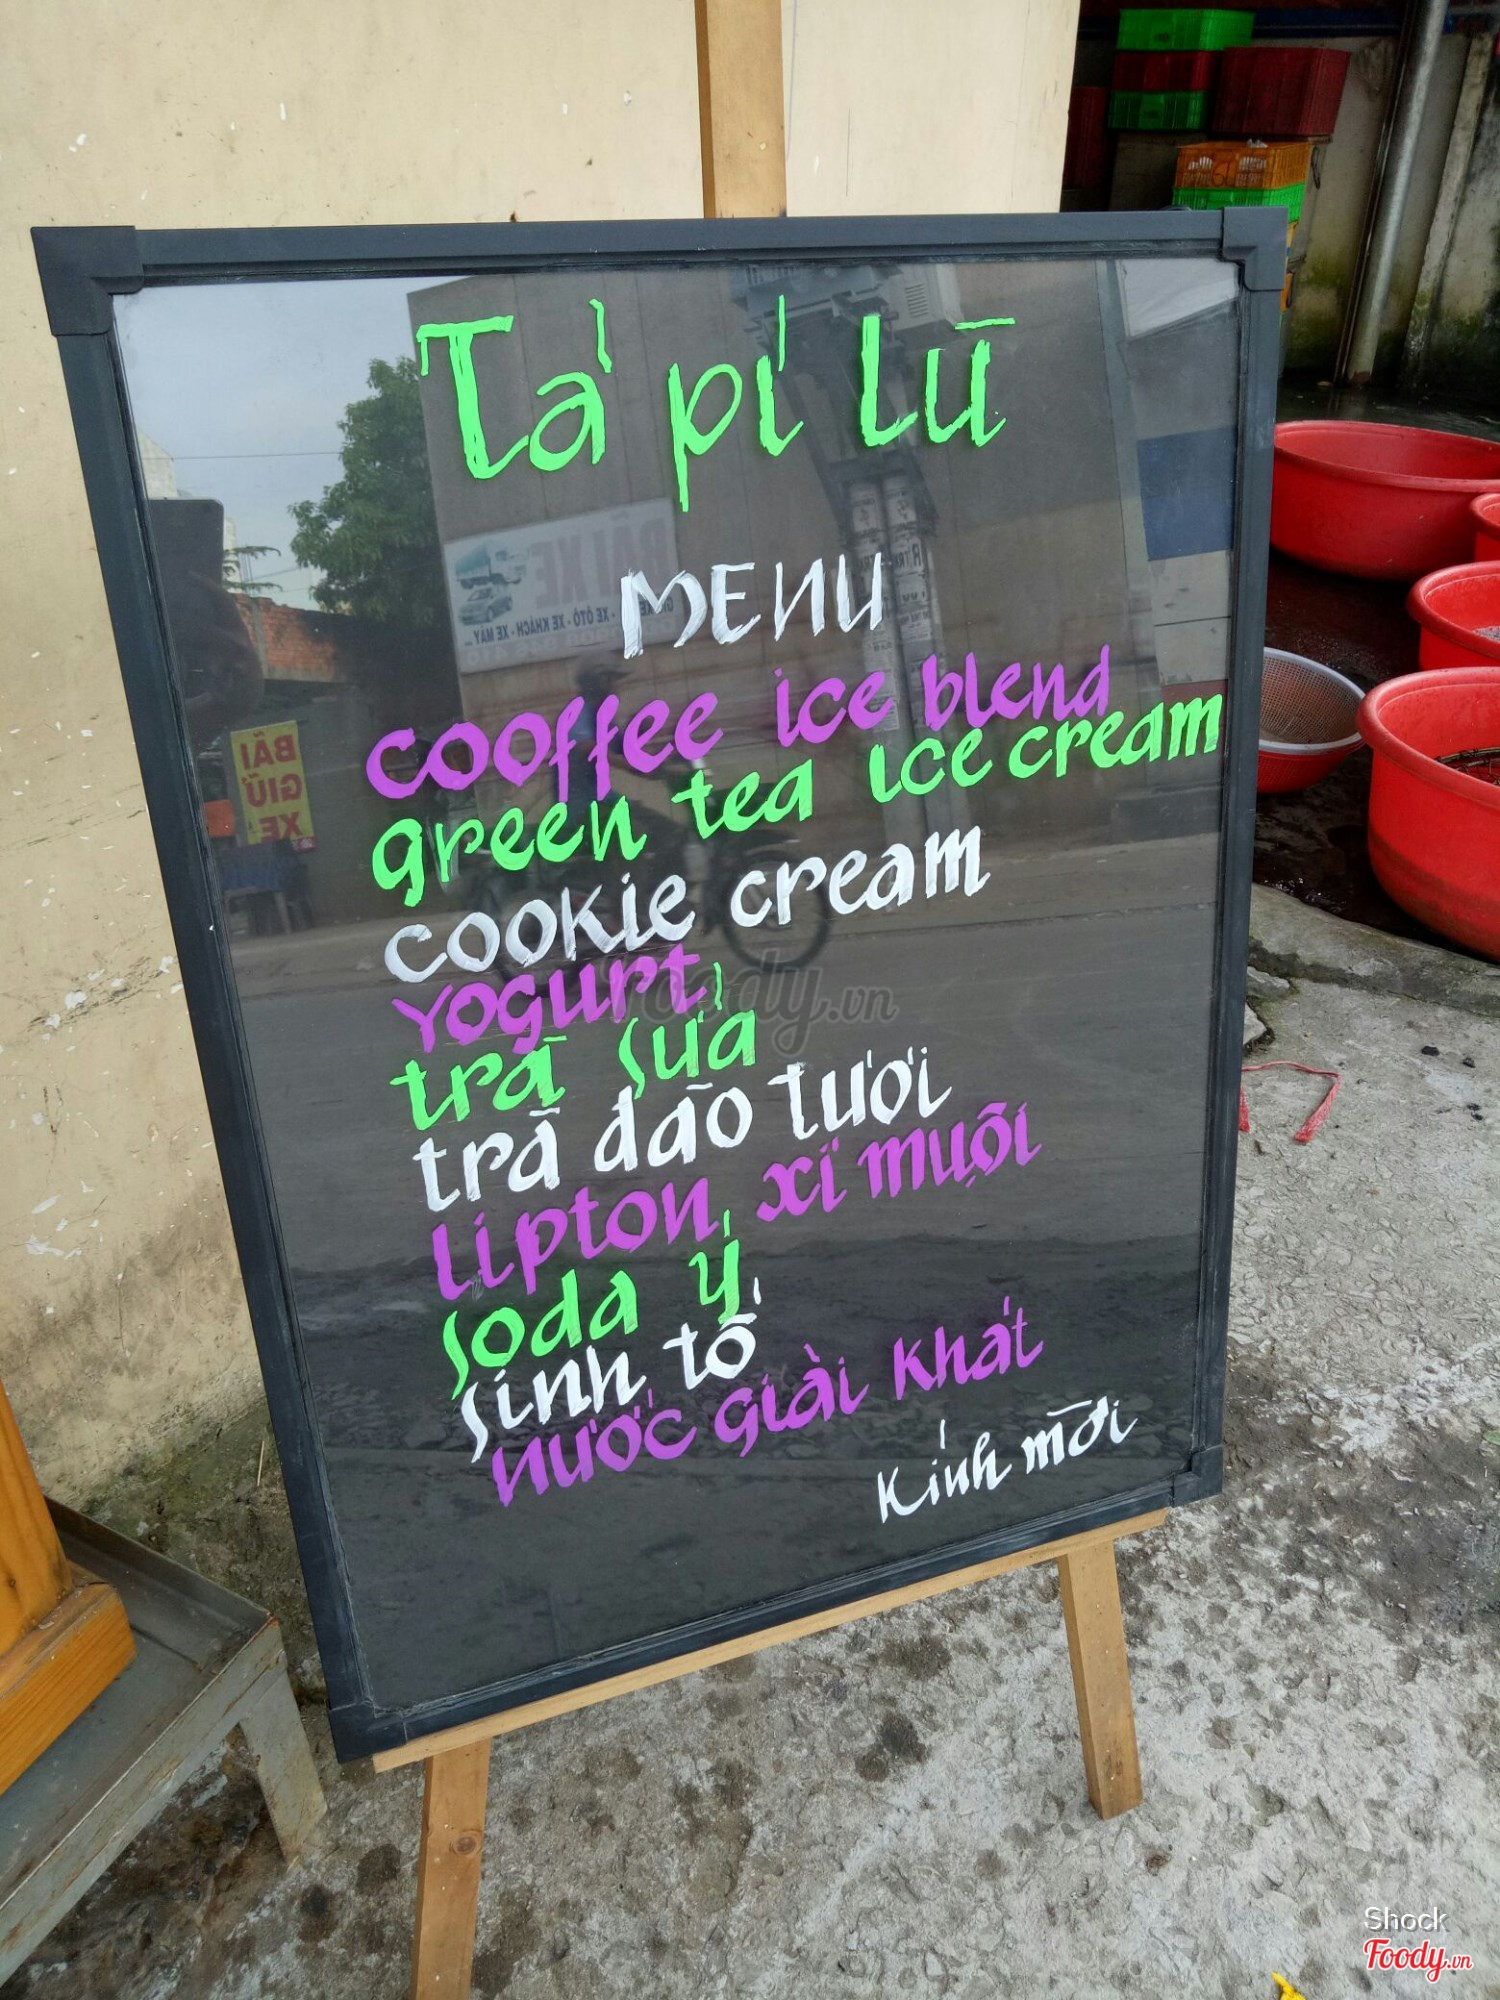 Tà pí Lū
MENU
cooffee ice blend
green tea ice cream
cookie cream
Yogurt
trà sữa
trà đào tươi
lipton xí muội
soda ý
sinh tố
nước giải khát
Kính mời
BÃI XE
XE ÔTÔ - XE KHÁCH - XE MÁY
BÃI
GIỮ
XE
Foody.vn
Shock
Foody.vn